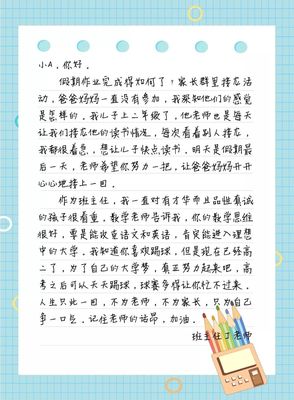 小A,你好。
假期作业完成得如何了?家长群里接龙活
动,爸爸妈妈一直没有参加,我深知他们的感觉
是怎样的,我儿子上二年级了,他老师也是每天
让我们接龙他的读书情况,每次看着别人接龙,
我都很着急,想让儿子快点读书,明天是假期最
后一天,老师希望你努力一把,让爸爸妈妈开开
心心地接上一回。
作为班主任,我一直对有才华而且品性真诚
的孩子很看重,数学老师告诉我,你的数学思维
很好,要是能攻克语文和英语,肯定能进入理想
中的大学。我知道你喜欢踢球,但是现在已经高
二了,为了自己的大学梦,真正努力起来吧,高
考之后可以天天踢球,球赛多得让你忙不过来。
人生只此一回,不为老师,不为家长,只为自己
争一口气。记住老师的话昂,加油。
班主任丁老师